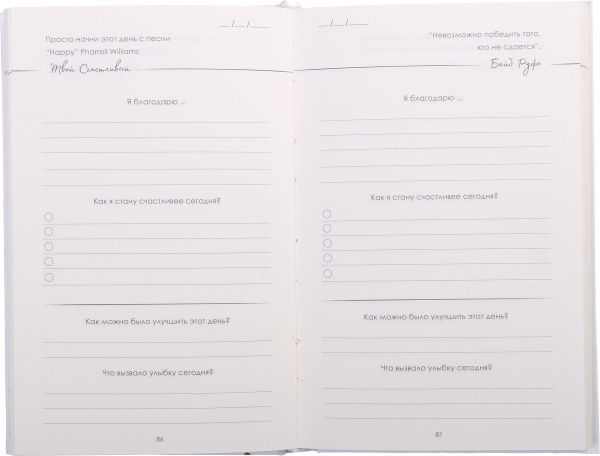 __/__/__
Просто начни этот день с песни
“Happy” Pharrell Williams
Твой Счастливый
Я благодарю ...
Как я стану счастливее сегодня?
Как можно было улучшить этот день?
Что вызвало улыбку сегодня?
86
__/__/__
“Невозможно победить того,
кто не сдается”.
Бейб Руфь
Я благодарю ...
Как я стану счастливее сегодня?
Как можно было улучшить этот день?
Что вызвало улыбку сегодня?
87